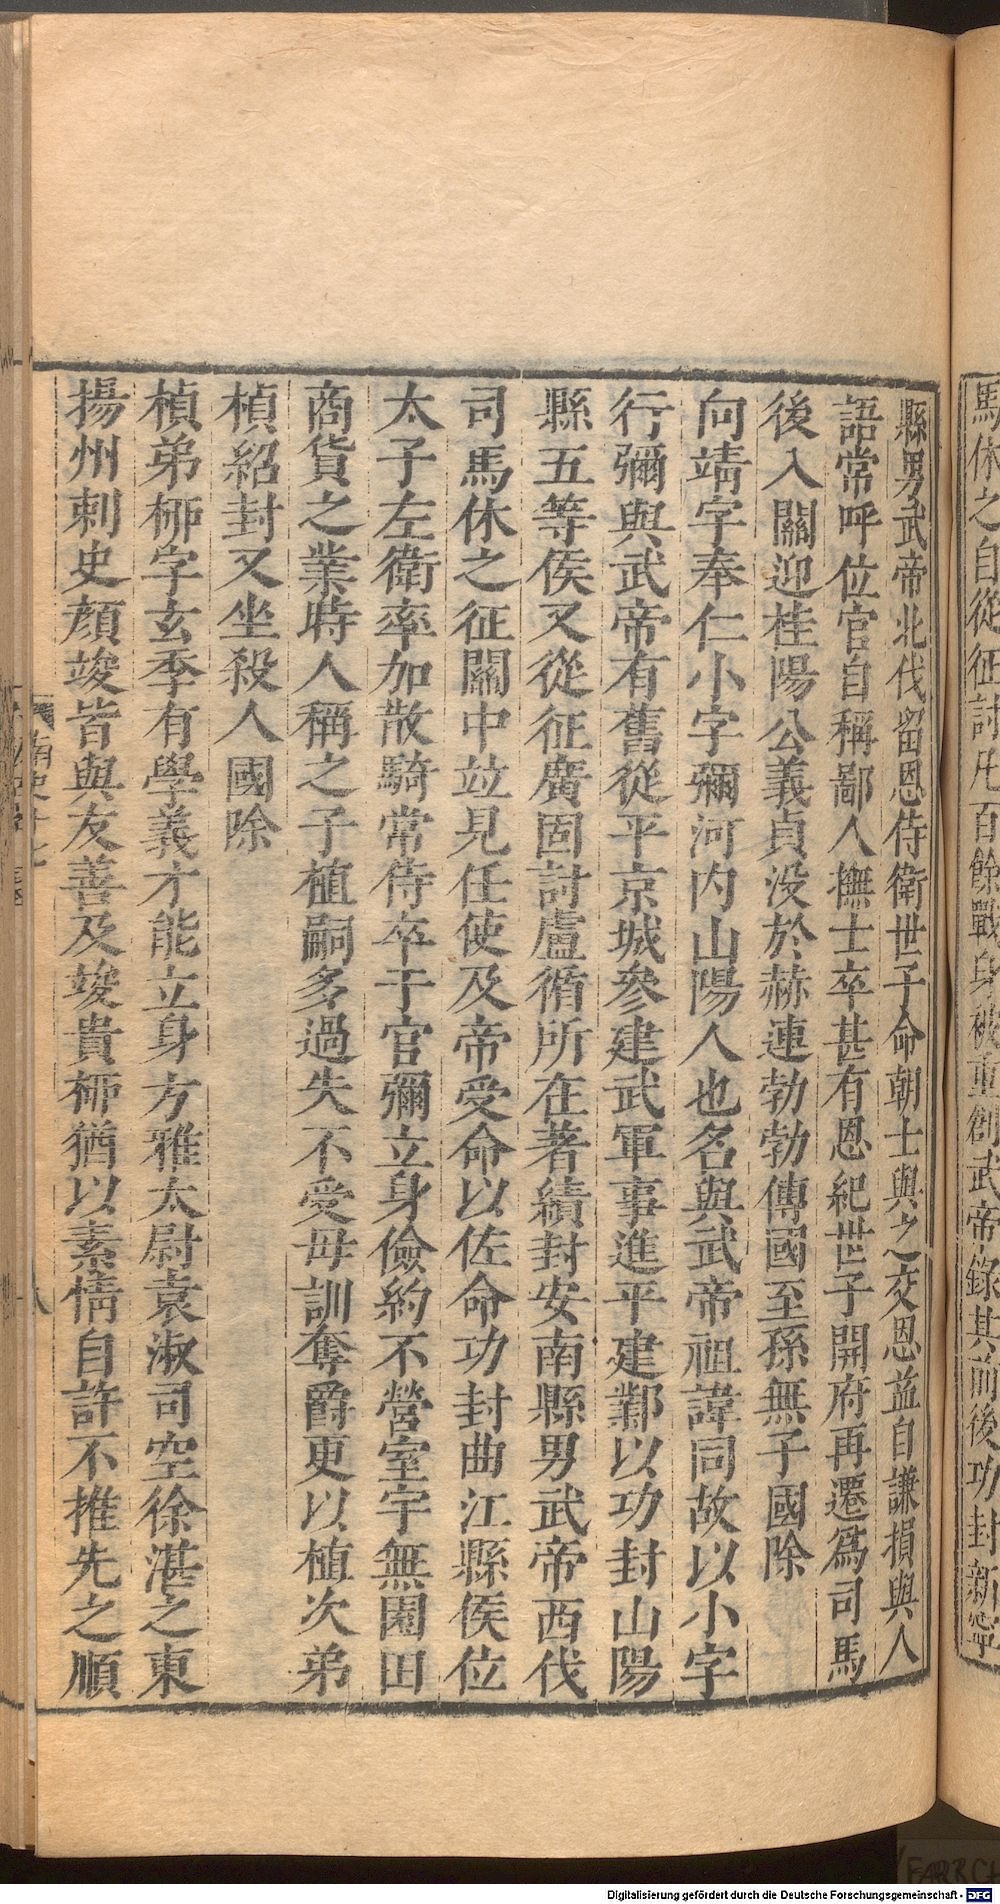 馬休之自從征討凡百餘戰身被重創武帝錄其前後功封新寧
縣男武帝北伐留恩侍衛世子命朝士與之交恩益自謙損與人
語常呼位官自稱鄙人撫士卒甚有恩紀世子開府再遷爲司馬
後入關迎桂陽公義貞没於赫連勃勃傳國至孫無子國除
向靖字奉仁小字彌河内山陽人也名與武帝祖諱同故以小字
行彌與武帝有舊從平京城參建武軍事進平建鄴以功封山陽
縣五等侯又從征廣固討盧循所在著績封安南縣男武帝西伐
司馬休之征關中竝見任使及帝受命以佐命功封曲江縣侯位
太子左衛率加散騎常侍卒于官彌立身儉約不營室宇無園田
商貨之業時人稱之子植嗣多過失不受母訓奪爵更以植次弟
楨紹封又坐殺人國除
楨弟栁字玄季有學義才能立身方雅太尉袁淑司空徐湛之東
揚州刺史顔竣皆與友善及竣貴栁猶以素情自許不推先之順
南史十七
八
Digitalisierung gefördert durch die Deutsche Forschungsgemeinschaft - DFG